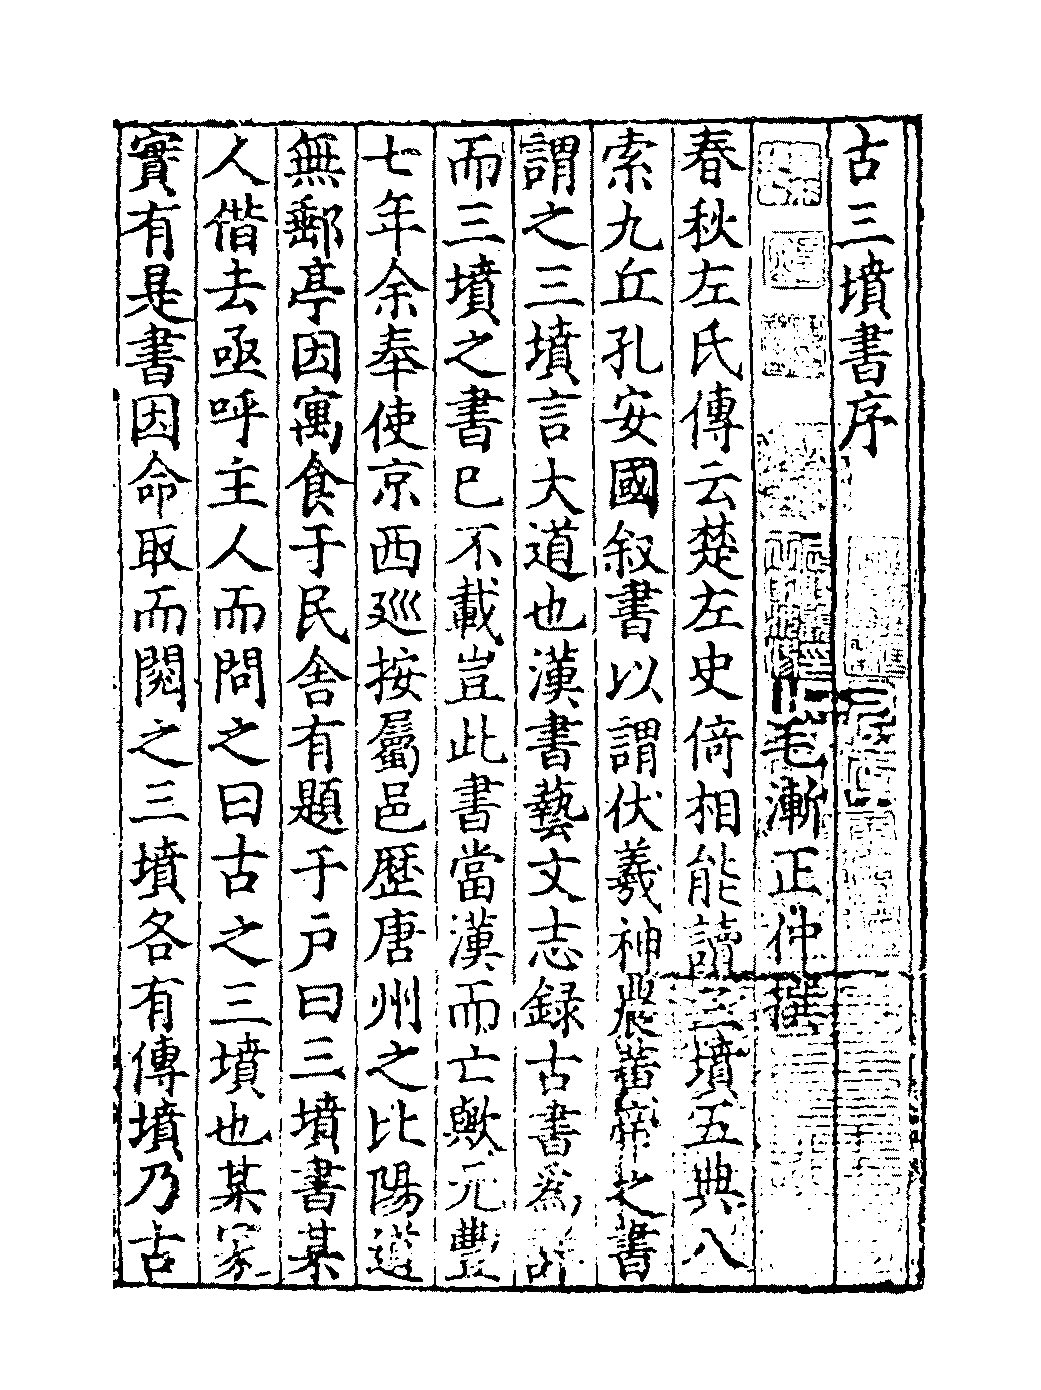 古三墳書序
毛漸正仲撰
春秋左氏傳云楚左史倚相能讀三墳五典八
索九丘孔安國叙書以謂伏羲神農黃帝之書
謂之三墳言大道也漢書藝文志録古書爲詳
而三墳之書已不載豈此書當漢而亡歟元豐
七年余奉使京西巡按屬邑歷唐州之比陽道
無郵亭因寓食于民舍有題于戶曰三墳書某
人借去亟呼主人而問之曰古之三墳也某家
實有是書因命取而閱之三墳各有傳墳乃古